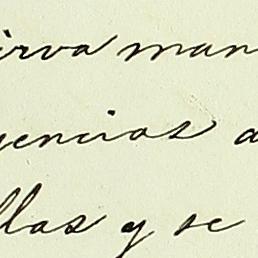 irva man
gencias a
llas y se